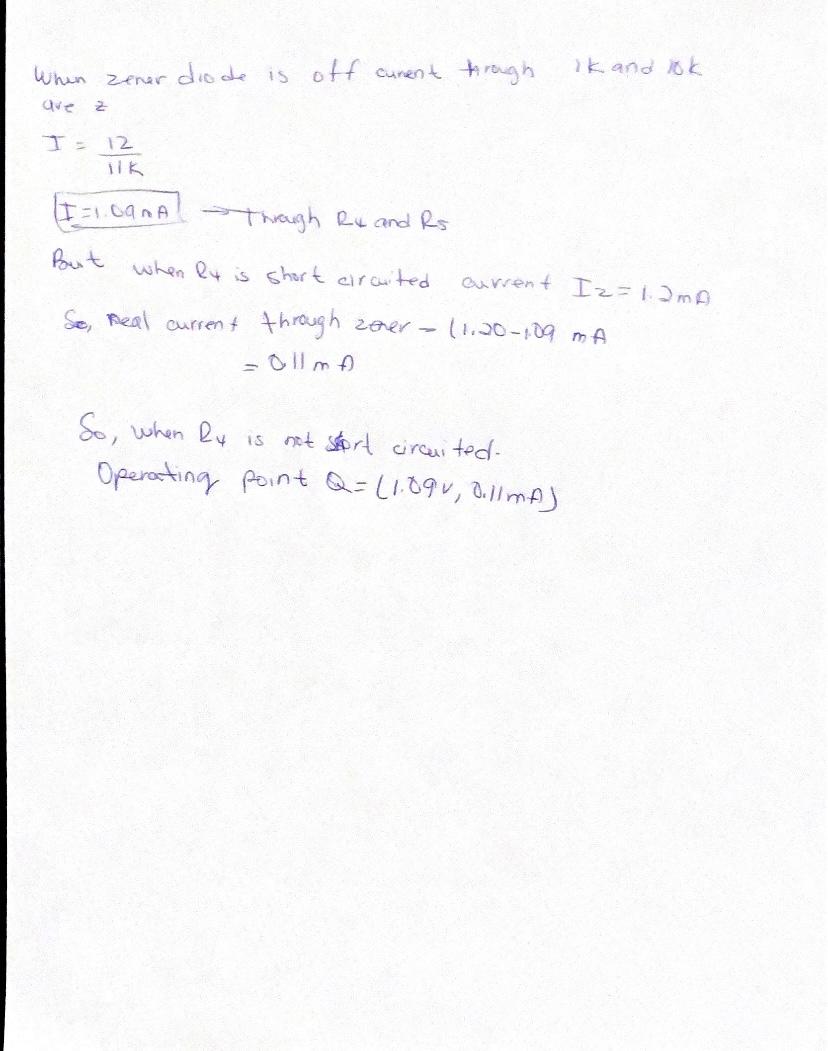 When zener diode is off current through 1k and 10k
are z
I = 12
11K
I=1.09mA → Through R4 and R5
But when R4 is short circuited current Iz = 1.2mA
So, Real current through zener = (1.20-1.09 mA
= 0.11 m A
So, when R4 is not short circuited.
Operating point Q = (1.09v, 0.11mA)